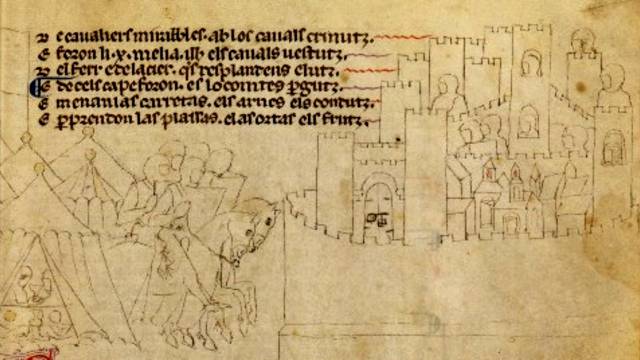 E cavaliers mirables. ab los cavals crinutz.
E foron li .x. melia. els cavals vestutz.
el ferr e del acier. qs resplantens e lutz.
E de cels foron. es lo comtes p̱gutz.
E menan las carretas. els arnes els condutz.
E p̱prendon las plassas. els ortas els frutz.